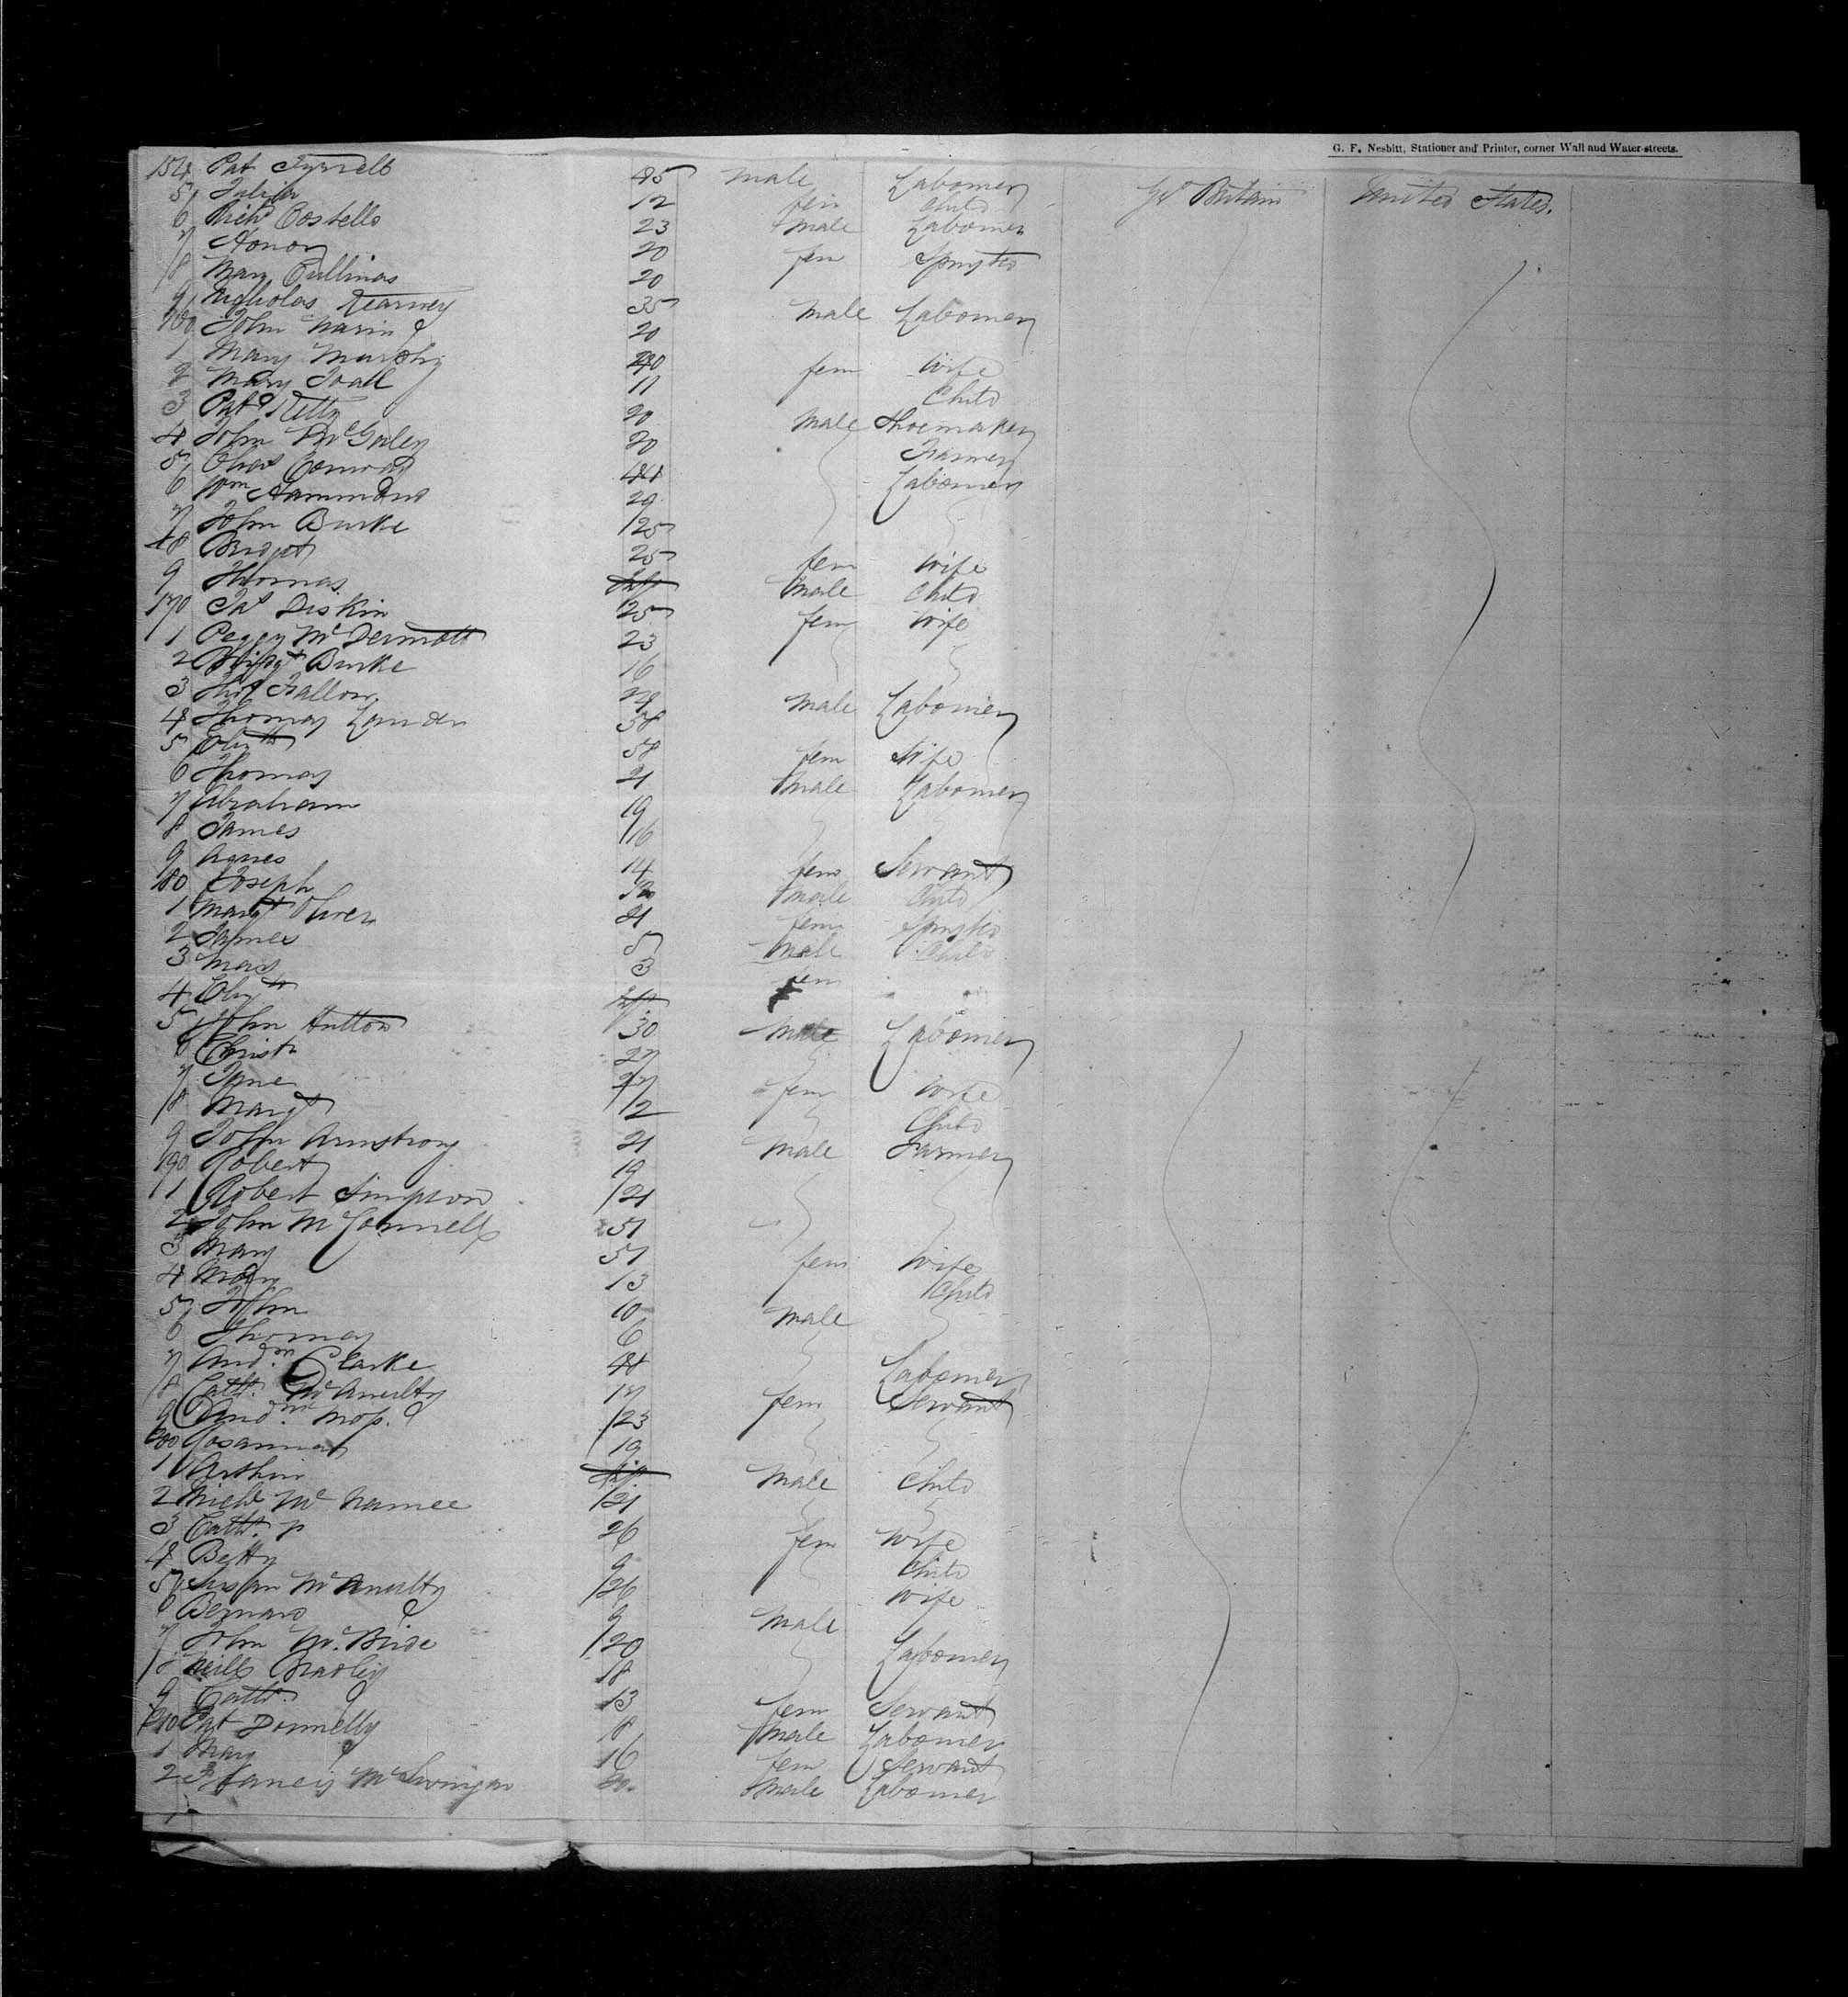 G. F. Nesbitt, Stationer and Printer, corner Wall and Water-streets.
154 Pat Tyrrell 45 male Labourer Gt Britain United States.
5 12 fem Child
6 Richd Costello 23 male Labourer
7 Honor 20 fem Spinster
8 Mary Cullinas 20
9 Nicholas Kearney 35 male Labourer
160 John 20
1 Mary Murphy 40 fem Wife
2 Mary 11 Child
3 Patk Kelly 20 male Shoemaker
4 John 20 Farmer
5 Chas Conway Labourer
6 Wm Hammond 29
7 John Burke 25
8 Bridget 25 fem Wife
9 Thomas Inf male Child
170 Jas Diskin 25 fem Wife
1 Peggy McDermott 23
2 Bridgt Burke 16
3 Thos Fallon 24 male Labourer
4 Thomas 58
5 Elizth 58 fem Wife
6 Thomas 21 male Labourer
7 Abraham 19
8 James 16
9 Agnes 14 fem Servant
180 Joseph male Child
1 Margt Oliver 21 fem Spinster
2 James 5 male Child
3 Mary 3 fem
4 Elizth Inf
5 John Hutton 30 male Labourer
6 Christr 27
7 Jane 27 fem Wife
8 Margt 2 Child
9 John Armstrong 21 male Farmer
190 Robert 19
1 Robert Simpson 21
2 John McConnell 51
3 Mary 51 fem Wife
4 Mary 13 Child
5 John 10 male
6 Thomas 6
7 Andw Clarke Labourer
8 Cathe McAnulty 17 fem Servant
9 23
200 Rosannah 19
1 Arthur Inf male Child
2 Michl McNamee 21
3 Cathe 26 fem Wife
4 Betty 9 Child
5 Susan McAnulty 26 Wife
6 Bernard 9 male
7 John McBride 20 Labourer
8 Neill Bradley 18
9 Cathe 13 fem Servant
210 Pat Donnelly 18 male Labourer
1 Mary 16 fem Servant
2 Francis 20 male Labourer